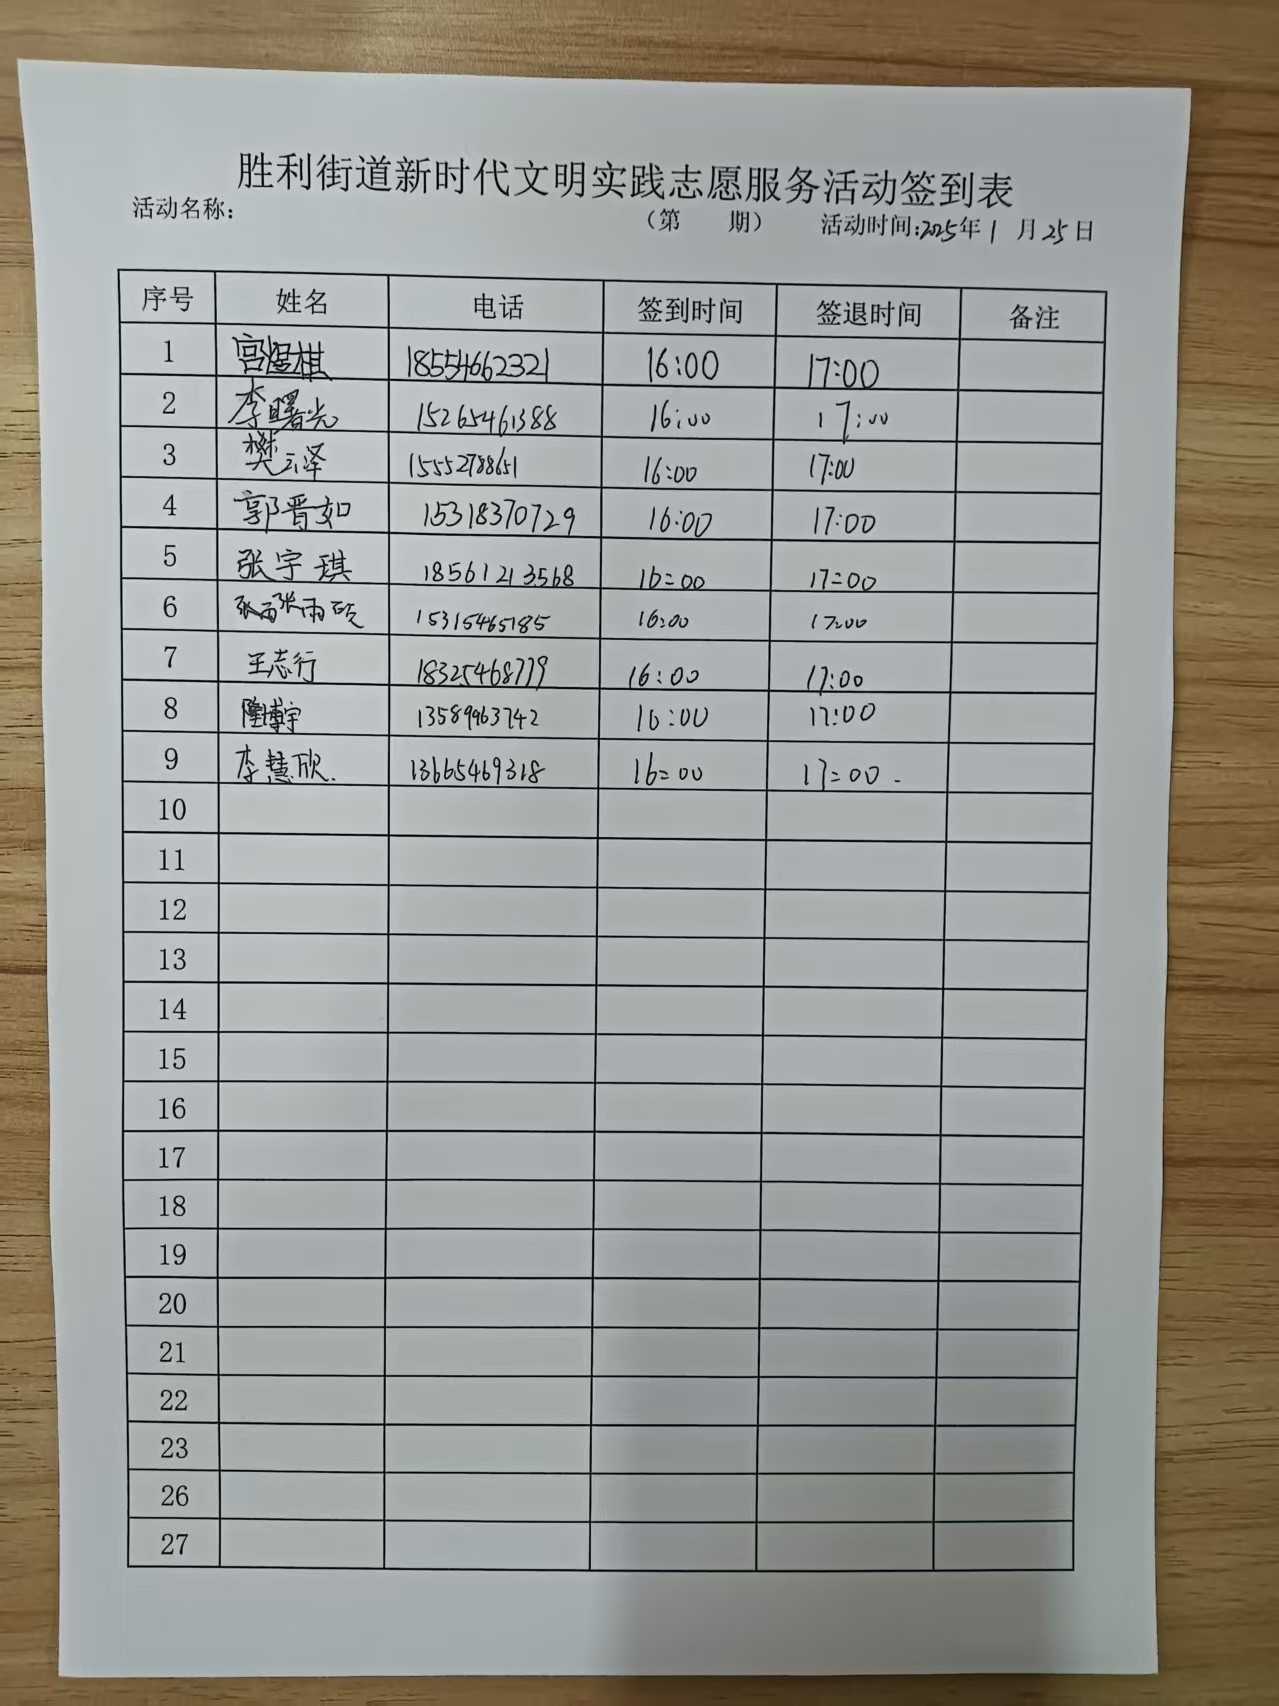 胜利街道新时代文明实践志愿服务活动签到表
活动名称： （第 期） 活动时间:2025年1月25日
序号 姓名 电话 签到时间 签退时间 备注
1 宫煜棋 18554662321 16:00 17:00
2 李曙光 15265461388 16:00 17:00
3 樊云泽 15552788651 16:00 17:00
4 郭晋如 15318370729 16:00 17:00
5 张宇琪 18561213568 16:00 17:00
6 张雨 15315465185 16:00 17:00
7 王志行 18325468779 16:00 17:00
8 隆博宇 13589963742 16:00 17:00
9 李慧欣. 13665469318 16:00 17:00.
10
11
12
13
14
15
16
17
18
19
20
21
22
23
26
27